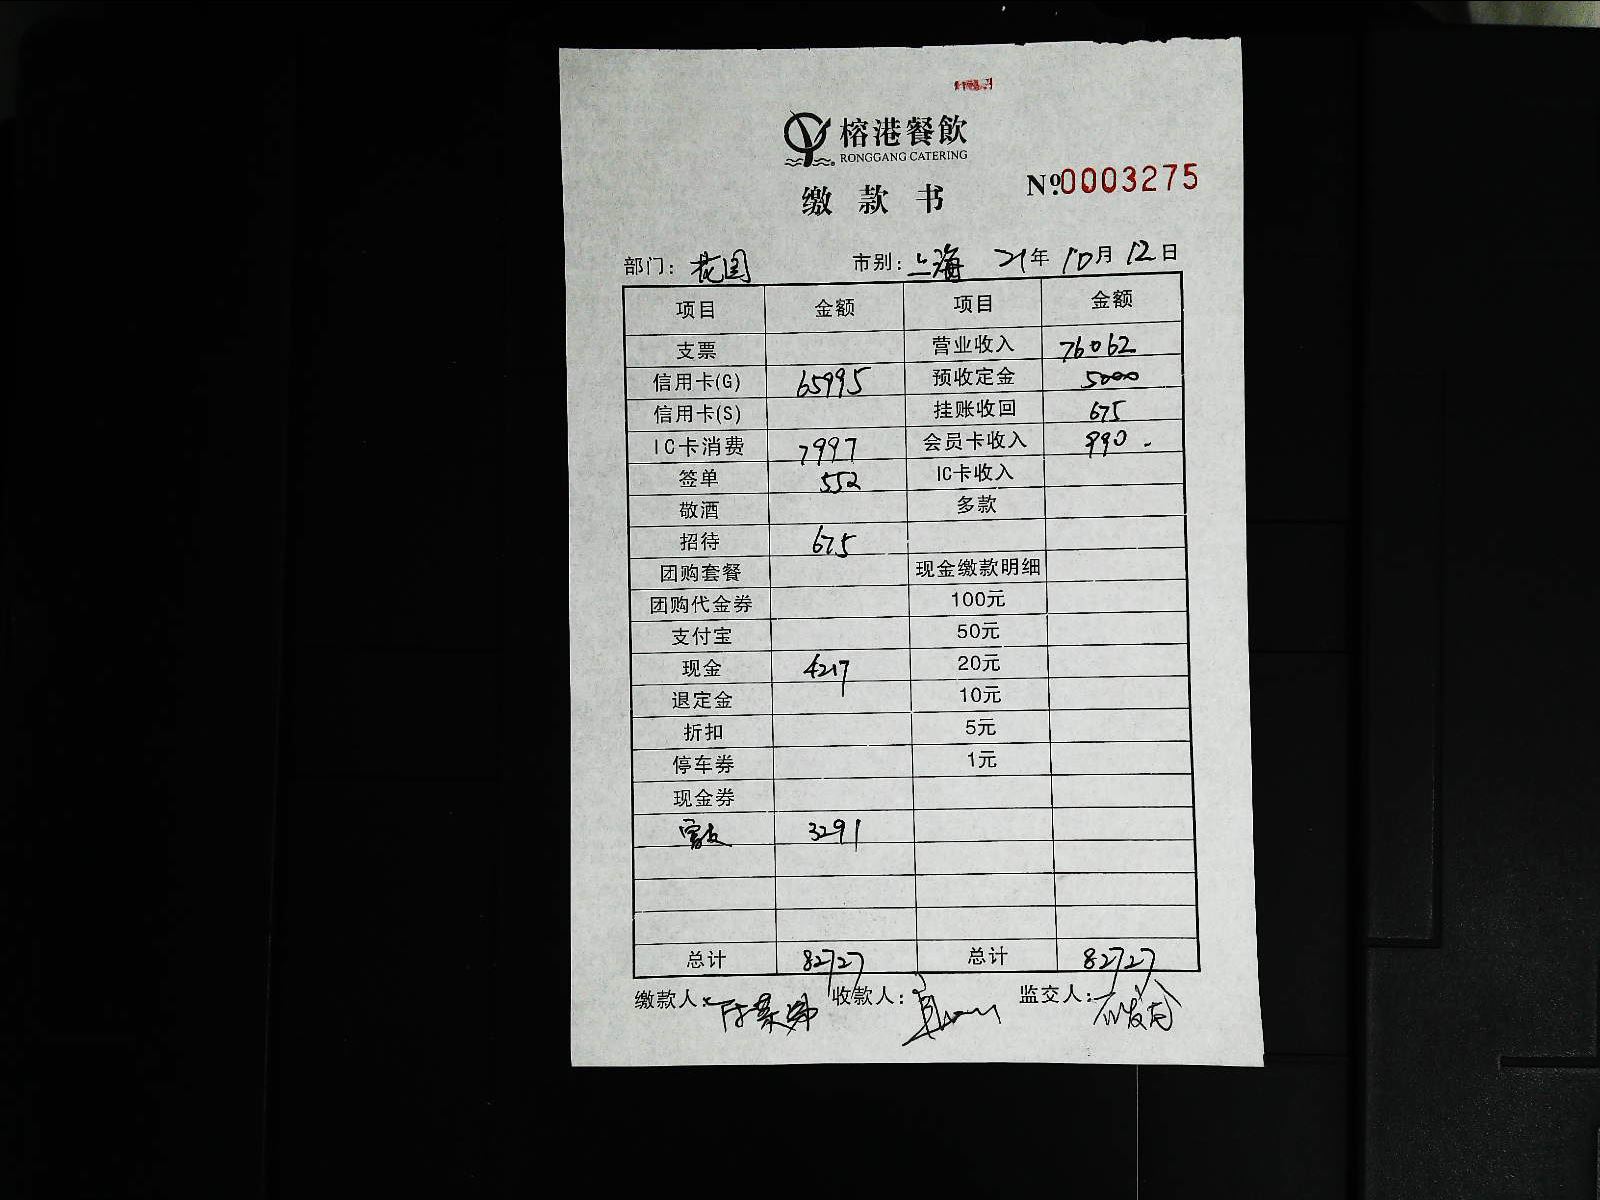 榕港餐飲
RONGGANG CATERING
缴款书
№0003275
部门：花园 市别：上海 21年10月12日
项目 金额 项目 金额
支票 营业收入 76062
信用卡(G) 65995 预收定金 5000
信用卡(S) 挂账收回 675
IC卡消费 7997 会员卡收入 990
签单 552 IC卡收入
敬酒 多款
招待 675
团购套餐 现金缴款明细
团购代金券 100元
支付宝 50元
现金 4217 20元
退定金 10元
折扣 5元
停车券 1元
现金券
3291
总计 82727 总计 82727
缴款人： 收款人： 监交人：